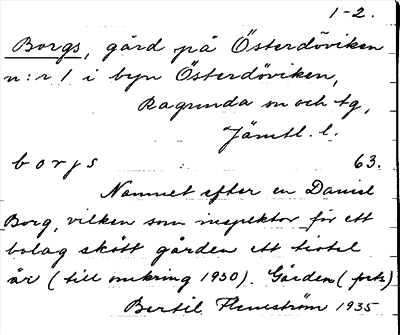 1-2.
Borgs, gård på Österdöviken
n:r 1 i byn Österdöviken,
Ragunda sn och tg,
Jämtl. l.
borjs : 63.
Namnet efter en Daniel
Borg, vilken som inspektor för ett
bolag skött gården ett tiotal
år (till omkring 1930). Gården (forts)
Bertil Flemström 1935